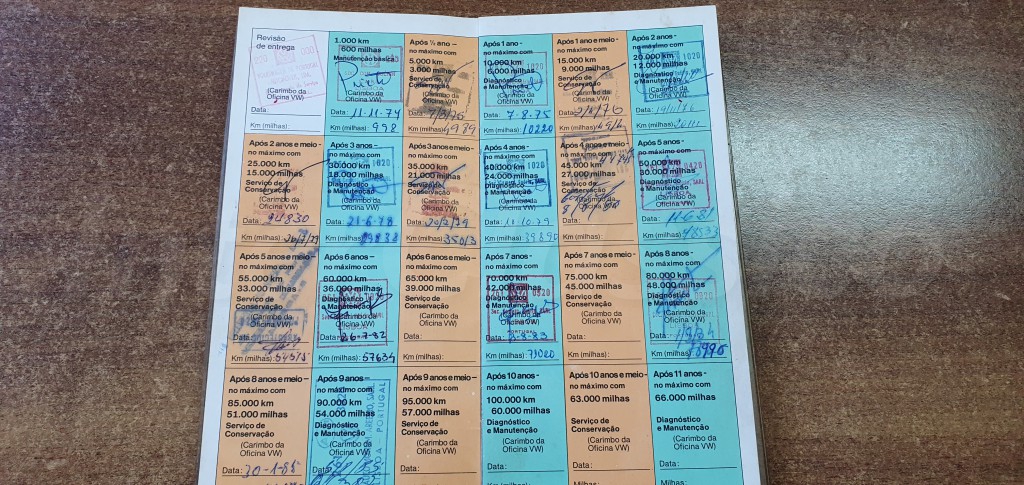 Revisão
de entrega
(Carimbo da
Oficina VW)
Data:
Km (milhas):
1.000 km
600 milhas
Manutenção básica
(Carimbo da
Oficina VW)
Data: 11-11-74
Km (milhas): 998
Após ½ ano –
no máximo com
5.000 km
3.000 milhas
Serviço de
Conservação
(Carimbo da
Oficina VW)
Data:
Km (milhas): 4989
Após 1 ano -
no máximo com
10.000 km
6.000 milhas
Diagnóstico
e Manutenção
(Carimbo da
Oficina VW)
Data: 7-8-75
Km (milhas): 10220
Após 1 ano e meio -
no máximo com
15.000 km
9.000 milhas
Serviço de
Conservação
(Carimbo da
Oficina VW)
Data:
Km (milhas):
Após 2 anos -
no máximo com
20.000 km
12.000 milhas
Diagnóstico
e Manutenção
(Carimbo da
Oficina VW)
Data:
Km (milhas): 20111
Após 2 anos e meio -
no máximo com
25.000 km
15.000 milhas
Serviço de
Conservação
(Carimbo da
Oficina VW)
Data: 24830
Km (milhas):
Após 3 anos -
no máximo com
30.000 km
18.000 milhas
Diagnóstico
e Manutenção
(Carimbo da
Oficina VW)
Data: 21-6-78
Km (milhas): 29833
Após 3 anos e meio -
no máximo com
35.000 km
21.000 milhas
Serviço de
Conservação
(Carimbo da
Oficina VW)
Data: 20/2/79
Km (milhas): 35013
Após 4 anos -
no máximo com
40.000 km
24.000 milhas
Diagnóstico
e Manutenção
(Carimbo da
Oficina VW)
Data: 11-10-79
Km (milhas): 39890
Após 4 anos e meio -
no máximo com
45.000 km
27.000 milhas
Serviço de
Conservação
(Carimbo da
Oficina VW)
Data:
Km (milhas):
Após 5 anos -
no máximo com
50.000 km
30.000 milhas
Diagnóstico
e Manutenção
(Carimbo da
Oficina VW)
Data: 11-6-81
Km (milhas):
Após 5 anos e meio -
no máximo com
55.000 km
33.000 milhas
Serviço de
Conservação
(Carimbo da
Oficina VW)
Data:
Km (milhas): 54575
Após 6 anos -
no máximo com
60.000 km
36.000 milhas
Diagnóstico
e Manutenção
(Carimbo da
Oficina VW)
Data: 26-7-82
Km (milhas): 57634
Após 6 anos e meio -
no máximo com
65.000 km
39.000 milhas
Serviço de
Conservação
(Carimbo da
Oficina VW)
Data:
Km (milhas):
Após 7 anos -
no máximo com
70.000 km
42.000 milhas
Diagnóstico
e Manutenção
(Carimbo da
Oficina VW)
PORTUGAL
Data:
Km (milhas):
Após 7 anos e meio -
no máximo com
75.000 km
45.000 milhas
Serviço de
Conservação
(Carimbo da
Oficina VW)
Data:
Km (milhas):
Após 8 anos -
no máximo com
80.000 km
48.000 milhas
Diagnóstico
e Manutenção
(Carimbo da
Oficina VW)
Data:
Km (milhas):
Após 8 anos e meio -
no máximo com
85.000 km
51.000 milhas
Serviço de
Conservação
(Carimbo da
Oficina VW)
Data: 30-1-85
Após 9 anos -
no máximo com
90.000 km
54.000 milhas
Diagnóstico
e Manutenção
(Carimbo da
Oficina VW)
PORTUGAL
Data:
Após 9 anos e meio -
no máximo com
95.000 km
57.000 milhas
Serviço de
Conservação
(Carimbo da
Oficina VW)
Data:
Após 10 anos -
no máximo com
100.000 km
60.000 milhas
Diagnóstico
e Manutenção
(Carimbo da
Oficina VW)
Data:
Após 10 anos e meio -
no máximo com
63.000 milhas
Serviço de
Conservação
(Carimbo da
Oficina VW)
Data:
Milhas:
Após 11 anos -
no máximo com
66.000 milhas
Diagnóstico
e Manutenção
(Carimbo da
Oficina VW)
Data:
Milhas: